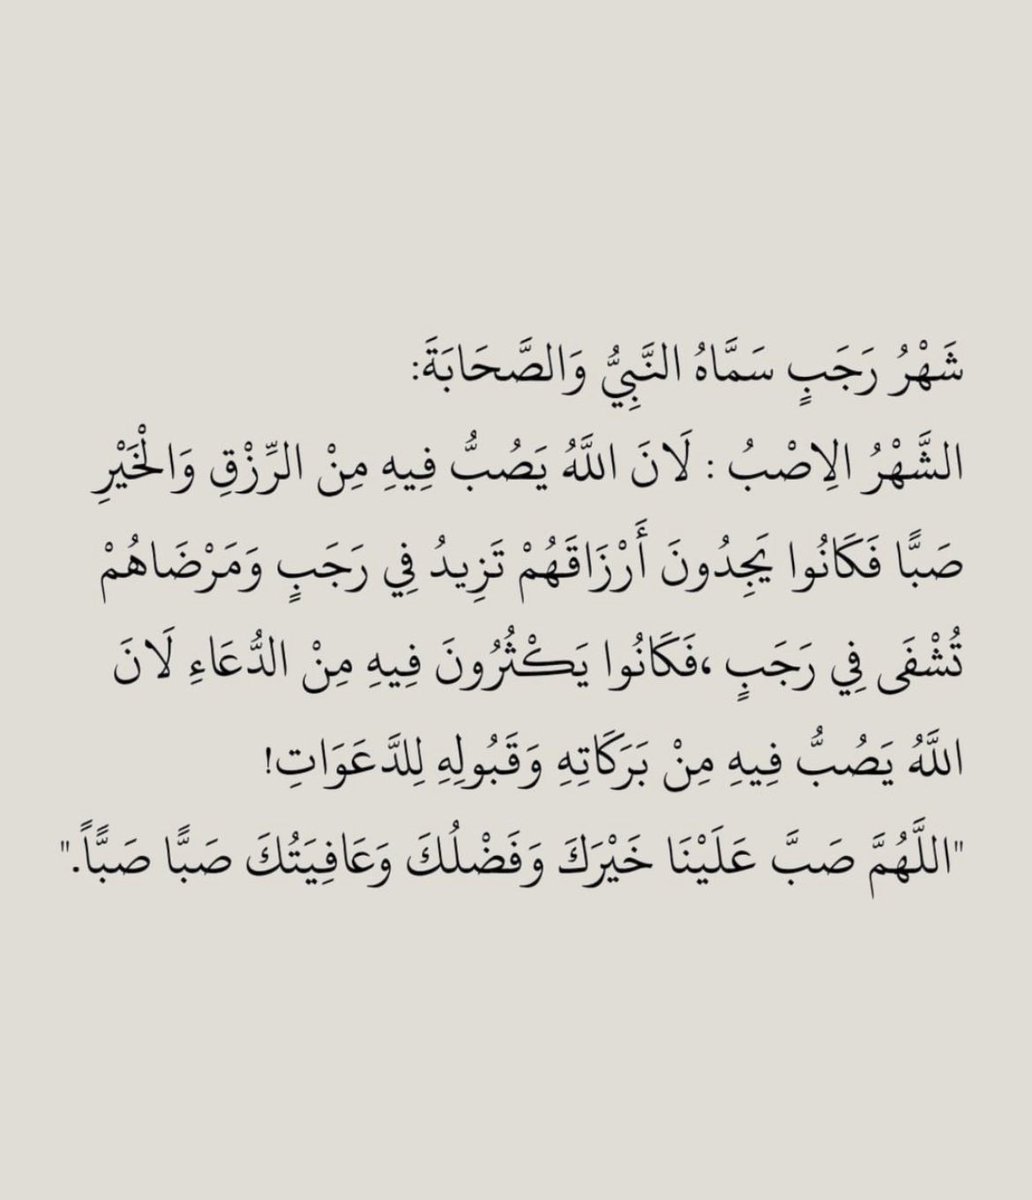 شَهْرُ رَجَبٍ سَمَّاهُ النَّبِيُّ وَالصَّحَابَةَ:
الشَّهْرُ الِاصْبُ : لَانَ اللَّهُ يَصُبُّ فِيهِ مِنْ الرِّزْقِ وَالْخَيْرِ
صَبًّا فَكَانُوا يَجِدُونَ أَرْزَاقَهُمْ تَزِيدُ فِي رَجَبٍ وَمَرْضَاهُمْ
تُشْفَى فِي رَجَبٍ ،فَكَانُوا يَكْثُرُونَ فِيهِ مِنْ الدُّعَاءِ لَانَ
اللَّهُ يَصُبُّ فِيهِ مِنْ بَرَكَاتِهِ وَقَبُولِهِ لِلدَّعَوَاتِ!
"اللَّهُمَّ صَبَّ عَلَيْنَا خَيْرَكَ وَفَضْلُكَ وَعَافِيَتُكَ صَبًّا صَبًّاً."